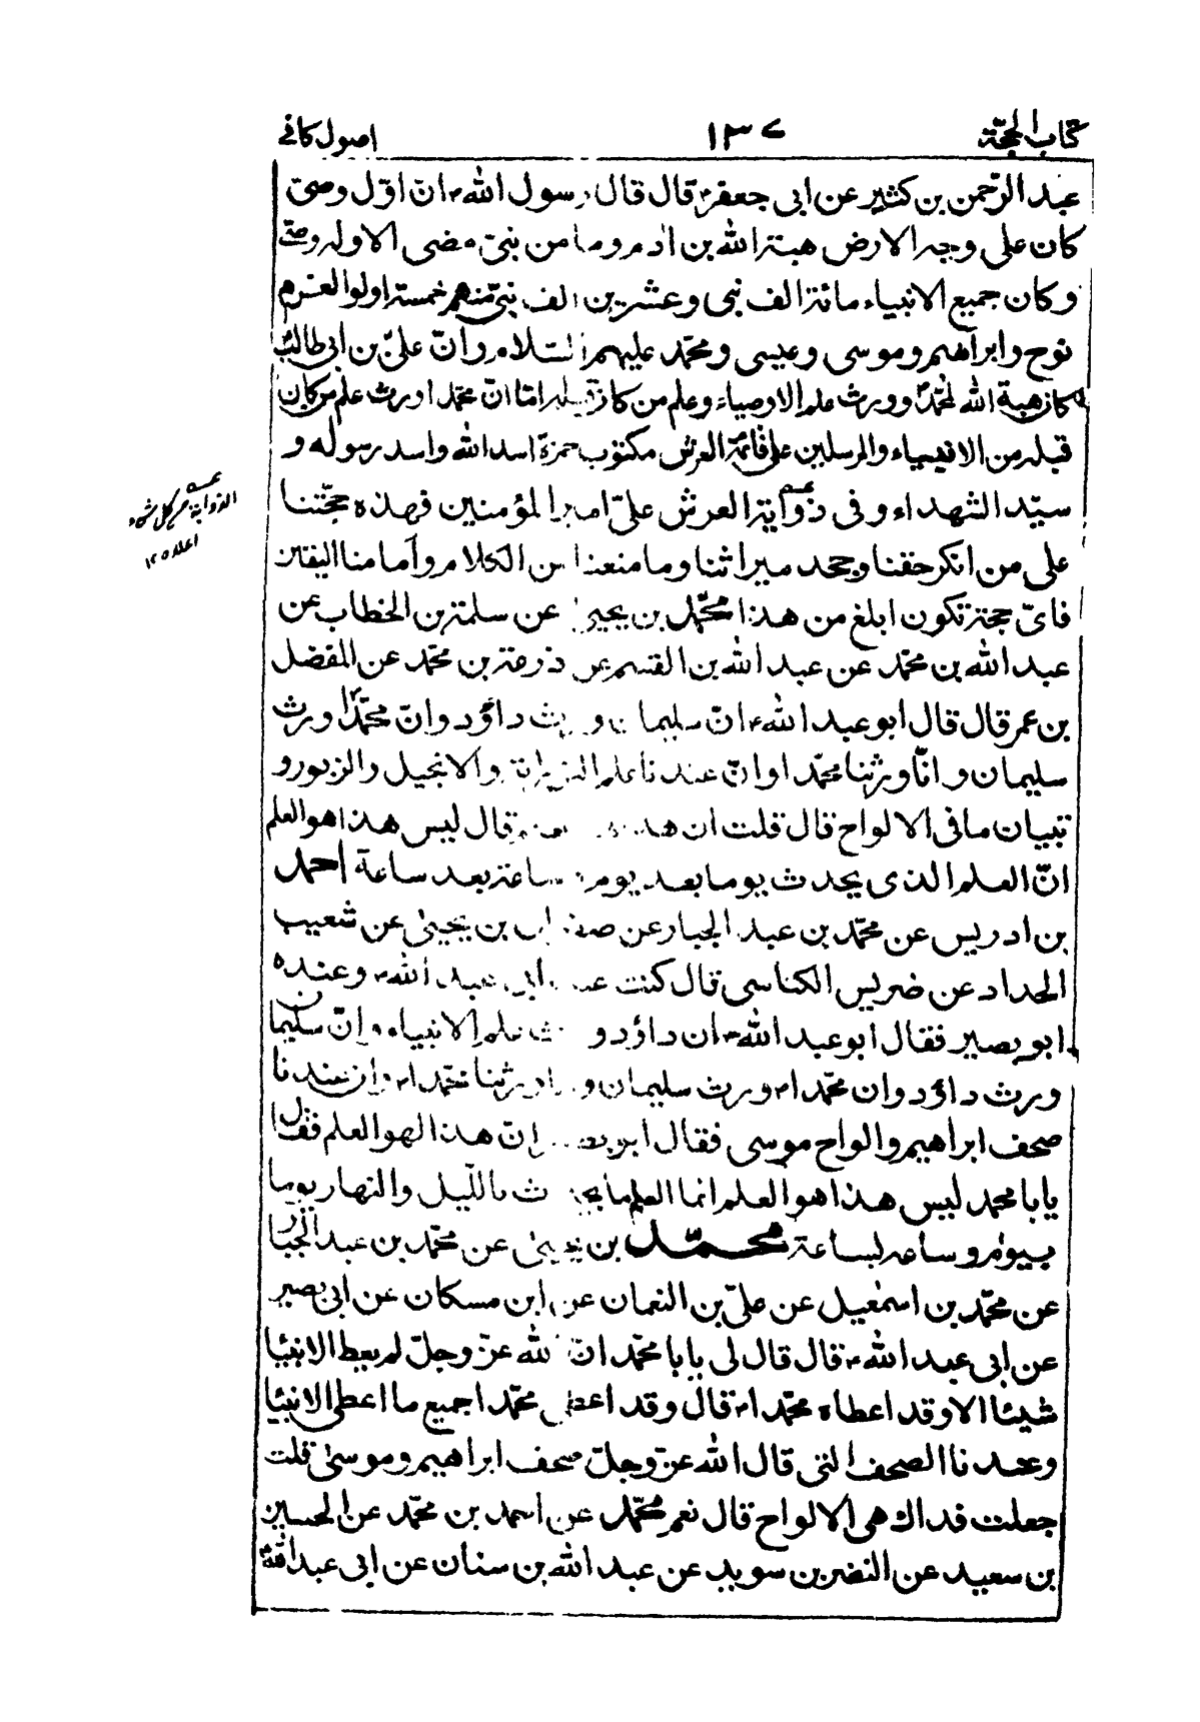 كتاب الحجّة ١٣٧ اصول كافے
عبد الرّحمن بن كثير عن ابى جعفر؏ قال قال رسول الله؏ انّ اوّل وصىّ
كان على وجه الارض هبة الله بن ادم وما من نبىّ مضى الا وله وصىّ
وكان جميع الانبياء مائة الف نبى وعشرين الف نبىّ منهم خمسة اولوا العزم
نوح وابراهيم وموسى وعيسى ومحمّد عليهم السّلام وانّ علىّ بن ابى طالب
كان هبة الله لمحمّدؐ وورث علم الاوصياء وعلم من كان قبله اما انّ محمّدا ورث علم من كان
قبله من الانبياء والمرسلين على قائمة العرش مكتوب حمزة اسد الله واسد رسوله و
سيّد الشهداء وفى ذؤابة العرش علىّ امير المؤمنين فهذه حجّتنا
على من انكر حقنا وجحد ميراثنا وما منعنا من الكلام وأمامنا اليقين
فاىّ حجة تكون ابلغ من هذا محمّد بن يحيى عن سلمة بن الخطاب عن
عبد الله بن محمّد عن عبد الله بن القسم عن زرعة بن محمّد عن المفضل
بن عمر قال قال ابو عبد الله؏ انّ سليمان ورث داؤد وانّ محمّداؐ ورث
سليمان وانّا ورثنا محمّدا وانّ عندنا علم التورىة والانجيل والزبور و
تبيان ما فى الالواح قال قلت ان هذا قال ليس هذا هو العلم
انّ العلم الذى يحدث يوما بعد يوم ساعة بعد ساعة احمد
بن ادريس عن محمّد بن عبد الجبار عن صفوان بن يحيىٰ عن شعيب
الحداد عن ضريس الكناسى قال كنت عند ابى عبد الله؏ وعنده
ابو بصير فقال ابو عبد الله؏ ان داؤد ورث علم الانبياء وانّ سليمان
ورث داؤد وان محمّدا؏ ورث سليمان وانا ورثنا محمّدا؏ وان عندنا
صحف ابراهيم والواح موسى فقال ابو بصير انّ هذا لهو العلم فقال
يا با محمد ليس هذا هو العلم انما العلم ما يحدث بالليل والنهار يوما
بيوم وساعه لساعة محمّد بن يحيىٰ عن محمّد بن عبد الجبّار
عن محمّد بن اسمٰعيل عن علىّ بن النعمان عن ابن مسكان عن ابى بصير
عن ابى عبد الله؏ قال قال لى يا با محمّد انّ الله عزّ وجلّ لم يعط الانبيا
شيئا الا وقد اعطاه محمّدا؏ قال وقد اعطى محمّدا جميع ما اعطى الانبيا
وعندنا الصحف التى قال الله عزّ وجلّ صحف ابراهيم وموسىٰ قلت
جعلت فداك هى الالواح قال نعم محمّد عن احمد بن محمّد عن الحسين
بن سعيد عن النضر بن سويد عن عبد الله بن سنان عن ابى عبد الله؏
عـــه
الذوابة من كل شىء
اعلاه ١٢